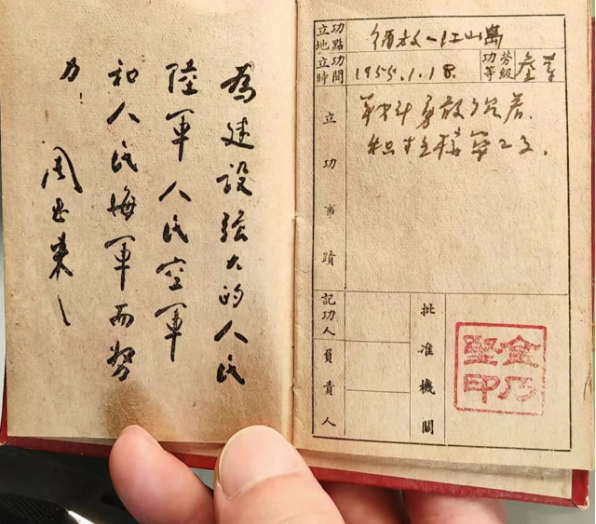 為建設強大的人民
陸軍人民空軍
和人民海軍而努
力!
周恩来
立功
地點
解放一江山島
立功
時間
1955.1.18.
功勞
等級
叁等
立功事蹟
战斗勇敢沉着.
积极
記功人
負責人
批准機關
金乃
堅印